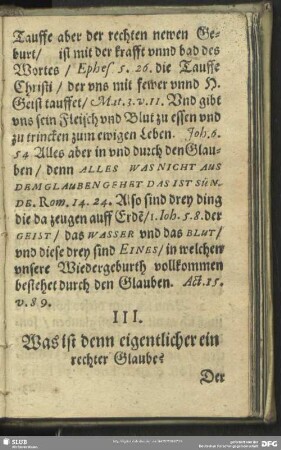 Tauffe aber der rechten newen Ge-
burt/ ist mit der krafft vnnd bad des
Wortes / Ephes 5. 26. die Tauffe
Christi / der vns mit fewer vnnd H.
Geist tauffet/ Mat. 3. v. 11. Vnd gibt
vns sein Fleisch vnd Blut zu essen vnd
zu trincken zum ewigen Leben. Joh. 6.
54 Alles aber in vnd durch den Glau-
ben / denn ALLES WAS NICHT AUS
DEM GLAUBEN GEHET DAS IST SÜN-
DE. Rom. 14. 24. Also sind drey ding
die da zeugen auff Erdē/ 1. Ioh. 5. 8. der
GEIST / das WASSER vnd das BLUT/
vnd diese drey sind EINES/ in welchen
vnsere Wiedergeburth vollkommen
bestehet durch den Glauben. Act. 15.
v. 8 9.
III.
Was ist denn eigentlicher ein
rechter Glaube?
Der
SLUB
DFG